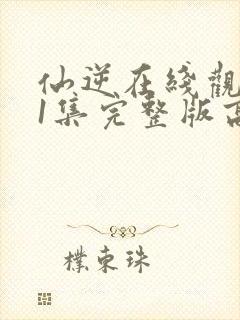 仙逆在綫觀
1集完整版高
樸東珠